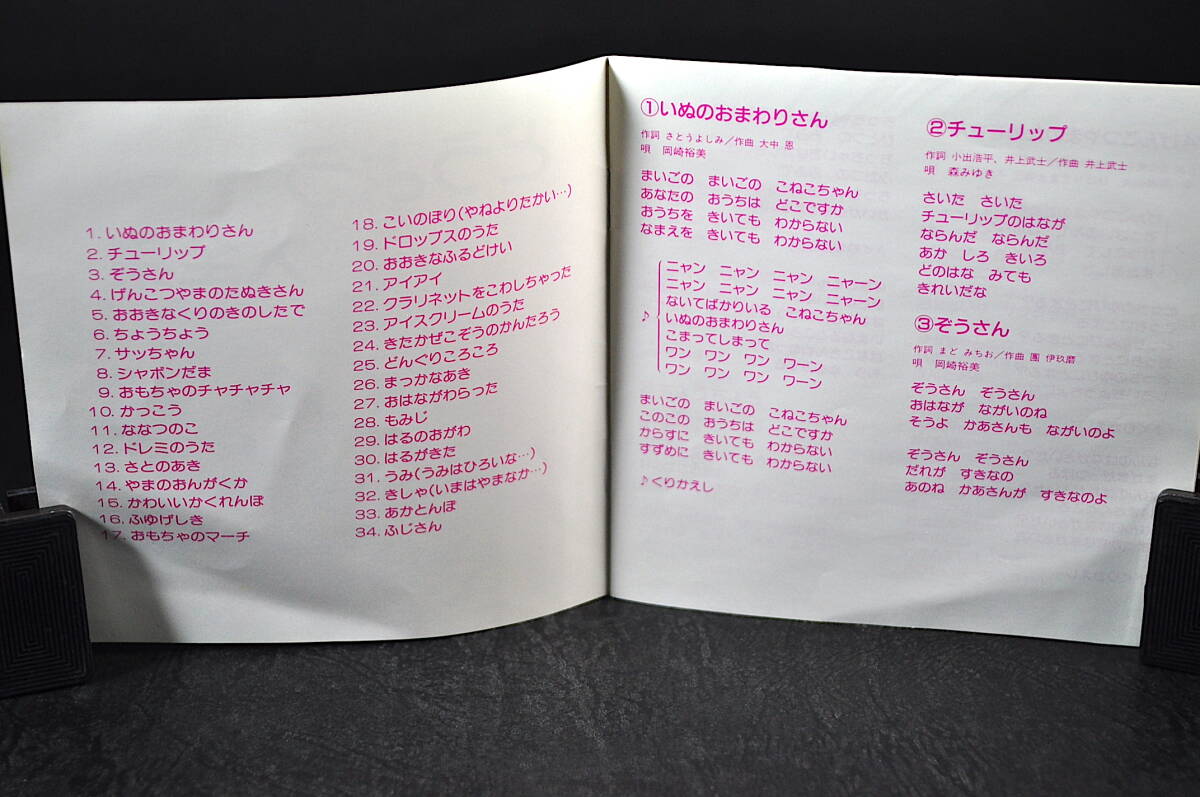 1. いぬのおまわりさん
2. チューリップ
3. ぞうさん
4. げんこつやまのたぬきさん
5. おおきなくりのきのしたで
6. ちょうちょう
7. サッちゃん
8. シャボンだま
9. おもちゃのチャチャチャ
10. かっこう
11. ななつのこ
12. ドレミのうた
13. さとのあき
14. やまのおんがくか
15. かわいいかくれんぼ
16. ふゆげしき
17. おもちゃのマーチ
18. こいのぼり(やねよりたかい…)
19. ドロップスのうた
20. おおきなふるどけい
21. アイアイ
22. クラリネットをこわしちゃった
23. アイスクリームのうた
24. きたかぜこぞうのかんたろう
25. どんぐりころころ
26. まっかなあき
27. おはながわらった
28. もみじ
29. はるのおがわ
30. はるがきた
31. うみ(うみはひろいな…)
32. きしゃ(いまはやまなか…)
33. あかとんぼ
34. ふじさん
①いぬのおまわりさん
作詞 さとうよしみ/作曲 大中 恩
唄 岡崎裕美
まいごの まいごの こねこちゃん
あなたの おうちは どこですか
おうちを きいても わからない
なまえを きいても わからない
ニャン ニャン ニャン ニャーン
ニャン ニャン ニャン ニャーン
ないてばかりいる こねこちゃん
♪ いぬのおまわりさん
こまってしまって
ワン ワン ワン ワーン
ワン ワン ワン ワーン
まいごの まいごの こねこちゃん
このこの おうちは どこですか
からすに きいても わからない
すずめに きいても わからない
♪くりかえし
②チューリップ
作詞 小出浩平、井上武士/作曲 井上武士
唄 森みゆき
さいた さいた
チューリップのはなが
ならんだ ならんだ
あか しろ きいろ
どのはな みても
きれいだな
③ぞうさん
作詞 まど みちお/作曲 團 伊玖磨
唄 岡崎裕美
ぞうさん ぞうさん
おはなが ながいのね
そうよ かあさんも ながいのよ
ぞうさん ぞうさん
だれが すきなの
あのね かあさんが すきなのよ